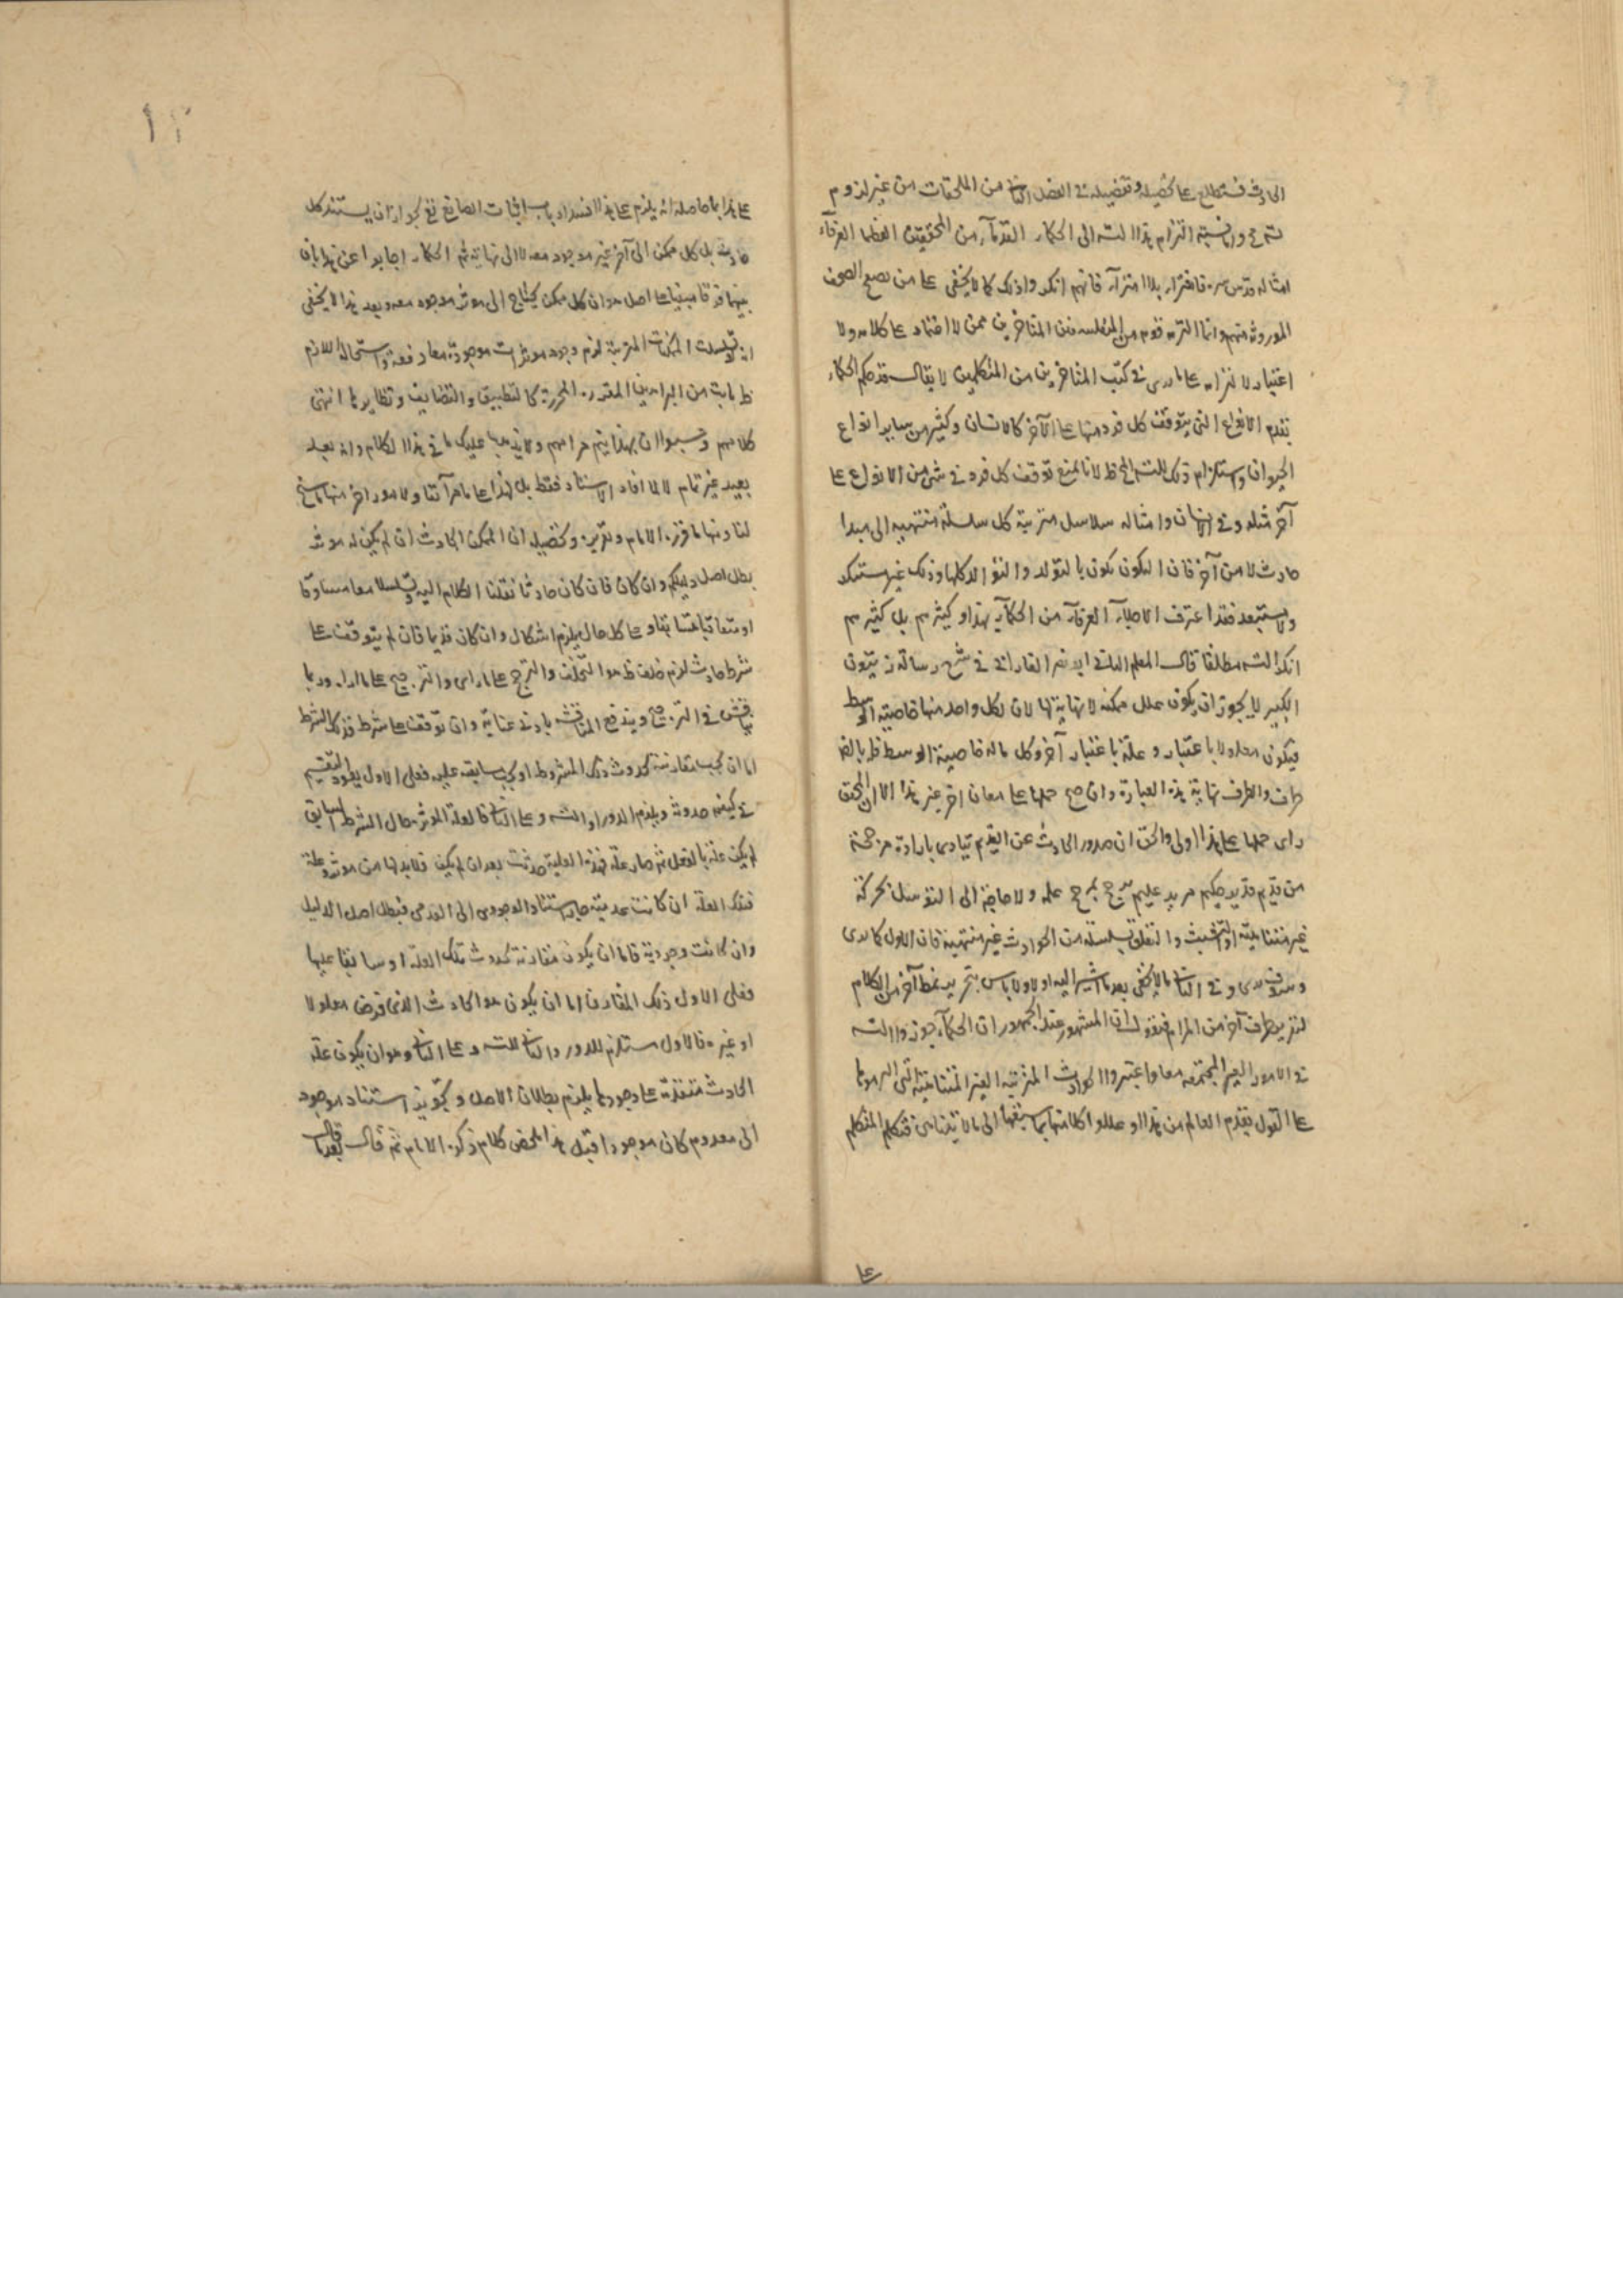 الحادث فستطلع على تحصيله وتفصيله في الفصل الثاني من الملحقات من غير لزوم
نسبة التزام هذا التسه الى الحكماء القدماء من المحققين العظماء العرفاء
امثاله قدس سره فافتراء بلا امتراء فانهم انكروا ذلك كما لا يخفى على من تصفح الصحف
الموروثة منهم وانما التزمه قوم من المتفلسفين المتأخرين ممن لا اعتماد على كلامه ولا
اعتبار لالتزامه على ما يرى في كتب المتأخرين من المتكلمين لا يقال قد حكم الحكماء
بقدم الانواع التي يتوقف كل فرد منها على الآخر كالانسان وكثير من ساير انواع
الحيوان واستلزام ذلك للتسه المخ ظ لانا نمنع توقف كل فرد في شئ من الانواع على
آخر مثله وفي الانسان وامثاله سلاسل مترتبة كل سلسلة منتهية الى مبدا
حادث لا من آخر فان التكون يكون بالتولد والتوالد كلها وذلك غير مستنكر
ولا مستبعد فقد اعترف الاجلاء العرفاء من الحكماء بهذا وكثير منهم بل كثيرهم
انكر التسه مطلقا قال المعلم الثاني ابو نصر الفارابي في شرح رسالة زينون
الكبير لا يجوز ان يكون علل ممكنة لا نهاية لها لان لكل واحد منها خاصية الوسط
فيكون معلولا باعتبار وعلة باعتبار آخر وكل ما له خاصية الوسط فله بالضرورة
طرف والطرف نهاية هذه العبارة وان صح حملها على معان اخر غير هذا الا ان المحقق
راى حملها على هذا اولى والحق ان صدور الحادث عن القديم يتادى بارادة مرجحة
من قديم قدير حكيم مريد عليم يرجح بمرجح علمه ولا حاجة الى التوسل بحركة
غير متناهية او التشبث والتعلق بسلسلة من الحوادث غير منتهية فان الاول كما ترى
وستوف ترى وفي الثاني ما لا يخفى بعد ما اشير اليه اولا ولا باس بتحرير نمط آخر من الكلام
لتنوير طرف آخر من المرام فنقول ان المشهور عند الجمهور ان الحكماء جوزوا التسه
في الامور الغير المجتمعة معا واعتبروا الحوادث المترتبة الغير المتناهية التي الزموها
على القول بقدم العالم من هذا وعللوا كلا منها بما يسبقها الى ما لا يتناهى فتكلم المتكلم
على
على هذا بما حاصله انه يلزم على هذا انسداد باب اثبات الصانع تع لجواز ان يستند كل
حادث بل كل ممكن الى آخر غير موجود معه لا الى نهاية ثم الحكماء اجابوا عن هذا بان
بينهما فرقا مبنيا على اصل هو ان كل ممكن يحتاج الى موثر موجود معه وبعد هذا لا يخفى
انه لو تسلسلت الممكنات المترتبة لزم وجود موثرات موجودة معا دفعة واستحالة اللازم
ظ بما ثبت من البراهين المقررة المحررة كالتطبيق والتضايف ونظايرها انتهى
كلامهم وحسبوا ان بهذا يتم مرامهم ولا يذهب عليك ما في هذا الكلام وانه بعد
بعيد غير تمام لا لما افاد الاستناد فقط بل لهذا على ما مر آنفا ولامور اخر منها ما سنح
لنا ومنها ما قرره الامام وتقريره وتحصيله ان الممكن الحادث ان لم يكن له موثر
بطل اصل دليلكم وان كان فان كان حادثا نقلنا الكلام اليه وتسلسلا معا متساوقا
او متعاقبا متتابعا وعلى كل حال يلزم اشكال وان كان قديما فان لم يتوقف على
شرط حادث لزم خلف ظ هو التخلف والترجح على راى والترجيح على ما اراه وربما
يناقش في الترجيح ويندفع المناقشة بادنى عناية وان توقف على شرط فذلك الشرط
اما ان يجب مقارنته لحدوث ذلك المشروط او يجب سابقيته عليه فعلى الاول يعود التقسيم
في كيفية حدوثه ويلزم الدور او التسه وعلى الثاني فالعلة الموثرة حال الشرط السابق
لم يكن علة بالفعل ثم صار علة فهذه العلية حدثت بعد ان لم يكن فلا بد لها من موثر وعلة
فتلك العلة ان كانت عدمية جاز استناد الوجودى الى العدمى فبطل اصل الدليل
وان كانت وجودية فاما ان يكون مقارنة لحدوث تلك العلة او سابقا عليها
فعلى الاول ذلك المقارن اما ان يكون هو الحادث الذى فرض معلولا
او غيره فالاول مستلزم للدور والثاني للتسه وعلى الثاني وهو ان يكون علة
الحادث متقدمة على وجودها يلزم بطلان الاصل وتجويز استناد موجود
الى معدوم كان موجودا قبل هذا ملخص كلام ذكره الامام ثم قال